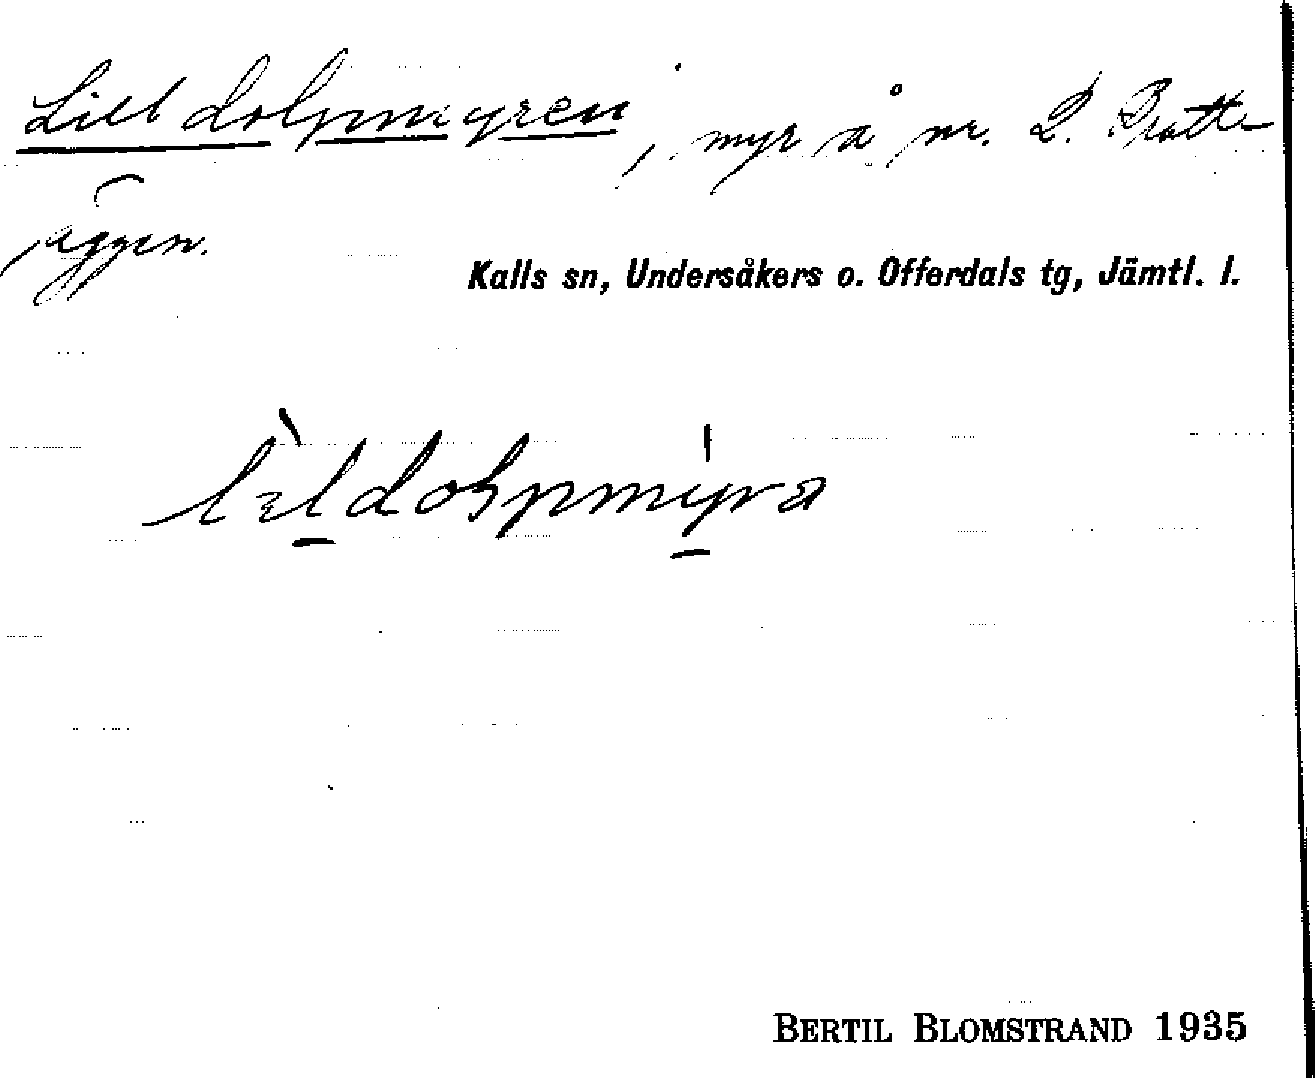 Lill dolpmyren, myr å nr. 2. Bratte
äggen.
Kalls sn, Undersåkers o. Offerdals tg, Jämtl. l.
lìldolpmyra
BERTIL BLOMSTRAND 1935